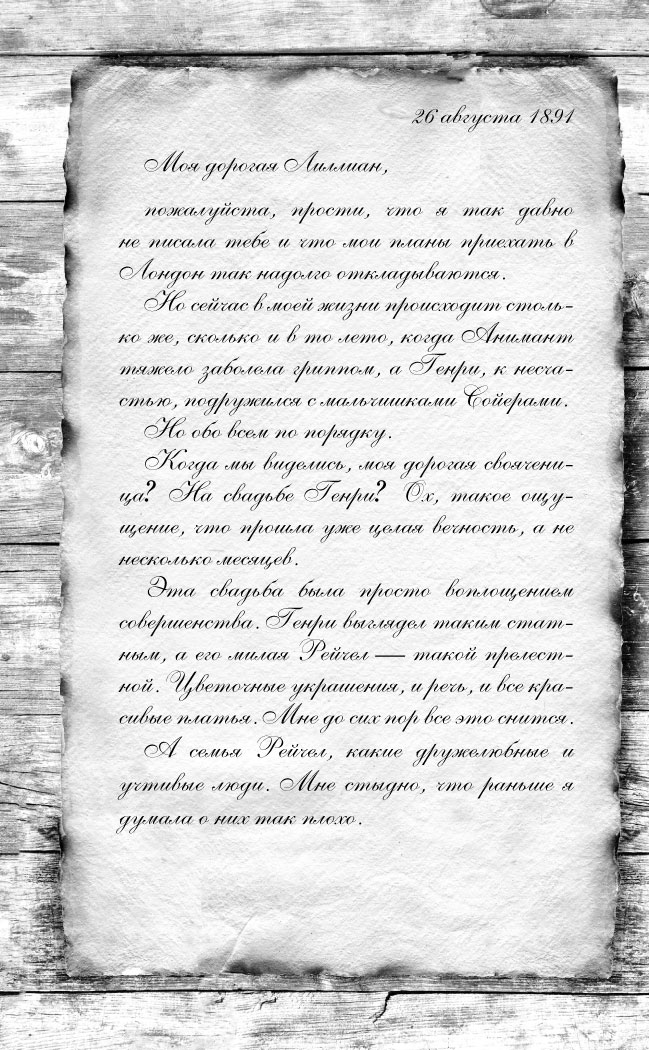 26 августа 1891
Моя дорогая Лиллиан,
пожалуйста, прости, что я так давно
не писала тебе и что мои планы приехать в
Лондон так надолго откладываются.
Но сейчас в моей жизни происходит столь-
ко же, сколько и в то лето, когда Анимант
тяжело заболела гриппом, а Генри, к несча-
стью, подружился с мальчишками Сойерами.
Но обо всем по порядку.
Когда мы виделись, моя дорогая своячени-
ца? На свадьбе Генри? Ох, такое ощу-
щение, что прошла уже целая вечность, а не
несколько месяцев.
Эта свадьба была просто воплощением
совершенства. Генри выглядел таким стат-
ным, а его милая Рейчел — такой прелест-
ной. Цветочные украшения, и речь, и все кра-
сивые платья. Мне до сих пор все это снится.
А семья Рейчел, какие дружелюбные и
учтивые люди. Мне стыдно, что раньше я
думала о них так плохо.